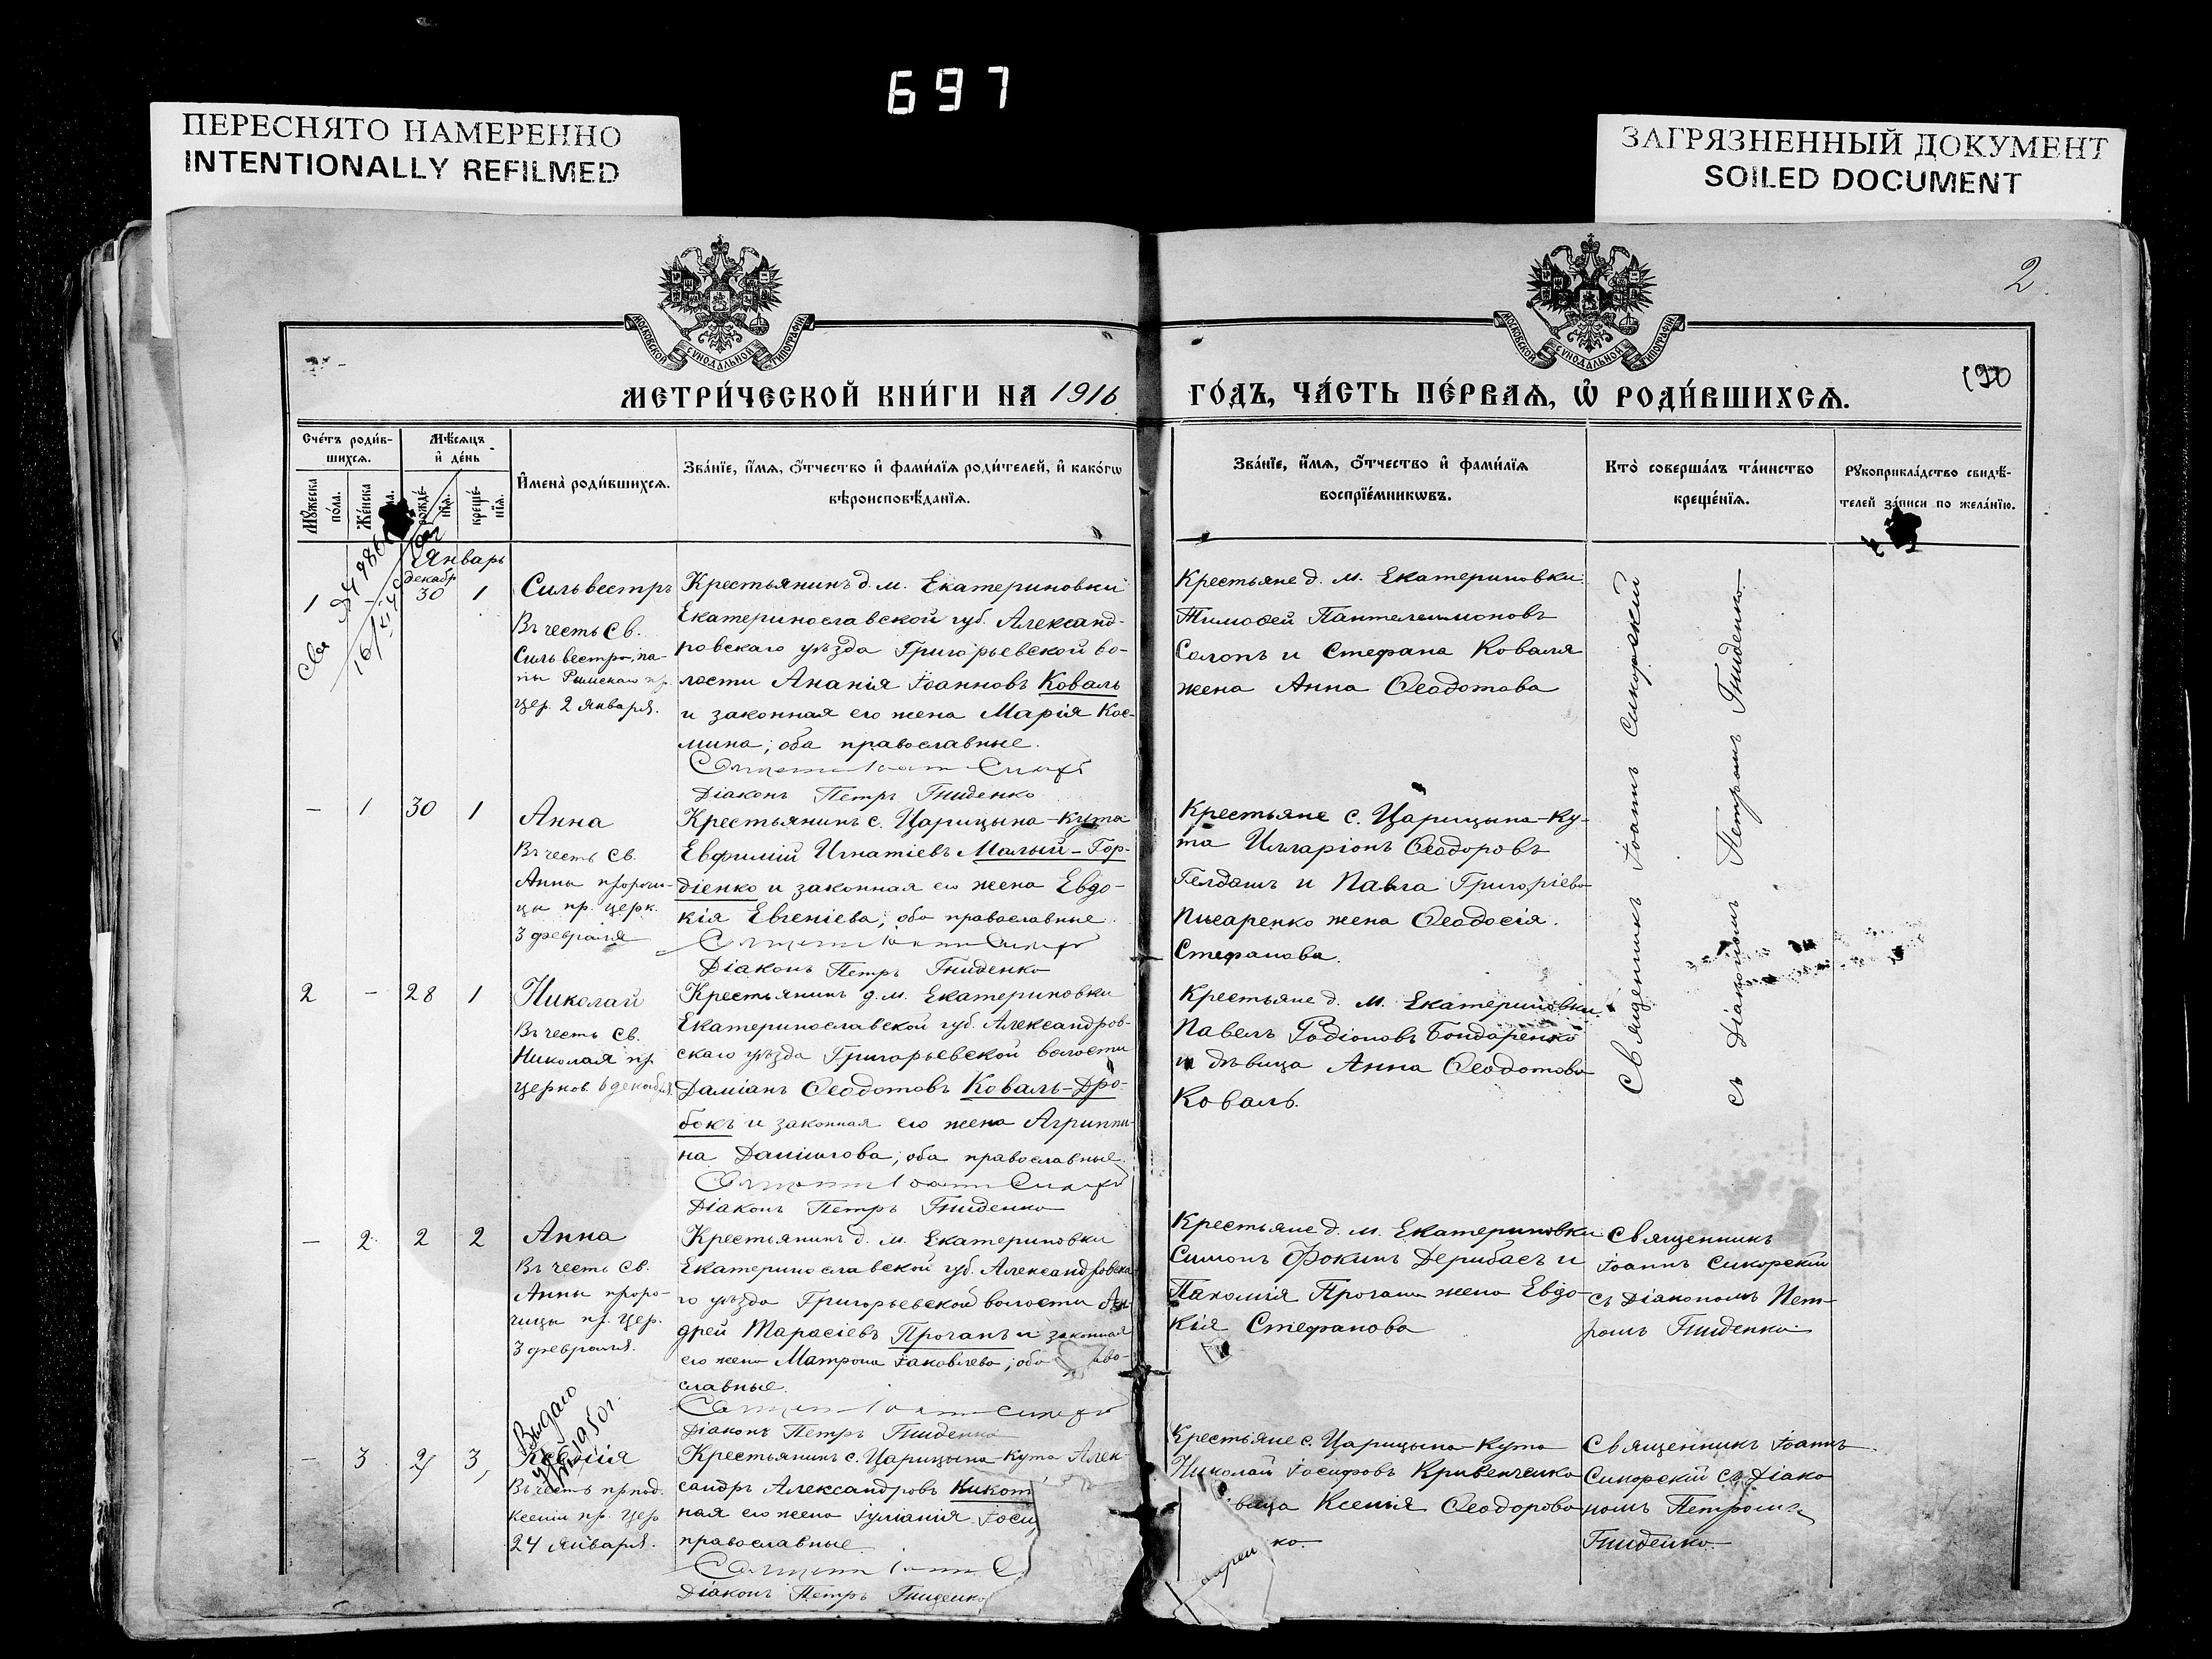 697
ПЕРЕСНЯТО НАМЕРЕННО
INTENTIONALLY REFILMED
ЗАГРЯЗНЕННЫЙ ДОКУМЕНТ
SOILED DOCUMENT
2
МОСКОВСКОЙ СѴНОДАЛЬНОЙ ТИПОГРАФІИ
МОСКОВСКОЙ СѴНОДАЛЬНОЙ ТИПОГРАФІИ
МЕТРИ́ЧЕСКОЙ КНИ́ГИ НА 1916
ГО́ДЪ, ЧА́СТЬ ПЕ́РВАѦ, Ѡ҆ РОДИ́ВШИХСѦ.
190
Сче́тъ роди́в-
шихсѧ.
Мѣ́сѧцъ
и҆ де́нь
Мꙋ́жеска
по́ла.
Же́нска
рожде́-
нїѧ.
креще́-
нїѧ.
И҆мена̀ роди́вшихсѧ.
Зва́нїе, и҆́мѧ, ѻ҆́тчество и҆ фами́лїѧ роди́телей, и҆ како́гѡ
вѣроисповѣ́данїѧ.
Зва́нїе, и҆́мѧ, ѻ҆́тчество и҆ фами́лїѧ
воспрїе́мникѡвъ.
Кто̀ соверша́лъ та́инство
креще́нїѧ.
Рꙋкоприкла́дство свидѣ́-
телей за́писи по жела́нїю.
Январь
декабр
1
-
30
1
Сильвестръ
Въ честь Св.
Сильвестра, па-
пы Римскаго пр.
цер. 2 января.
Крестьянинъ д. м. Екатериновки
Екатеринославской губ. Александ-
ровскаго уѣзда Григорьевской во-
лости Ананія Іоанновъ Коваль
и законная его жена Марія Кос-
мина; оба православные.
Діаконъ Петръ Гниденко
Крестьяне д. м. Екатериновки
Тимофей Пантелеимоновъ
Солопъ и Стефана Коваля
жена Анна Ѳеодотова
Священникъ Іоаннъ Сикорскій
съ Діакономъ Петромъ Гниденко
-
1
30
1
Анна
Въ честь Св.
Анны пророчи-
цы пр. церк.
3 февраля
Крестьянинъ с. Царицына-Кута
Евфимій Игнатіевъ Малый-Гор-
діенко и законная его жена Евдо-
кія Евгеніева; оба православные.
Діаконъ Петръ Гниденко
Крестьяне с. Царицына-Ку-
та Илларіонъ Ѳеодоровъ
Гелдашъ и Павла Григоріева
Писаренко жена Ѳеодосія
Стефанова.
2
-
28
1
Николай
Въ честь Св.
Николая пр.
церков. 6 декабря.
Крестьянинъ д. м. Екатериновки
Екатеринославской губ. Александров-
скаго уѣзда Григорьевской волости
Даміанъ Ѳеодотовъ Коваль-Дро-
бокъ и законная его жена Агриппи-
на Даніилова; оба православные.
Діаконъ Петръ Гниденко
Крестьяне д. м. Екатериновки
Павелъ Родіоновъ Бондаренко
и дѣвица Анна Ѳеодотова
Коваль.
-
2
2
2
Анна
Въ честь Св.
Анны проро-
чицы пр. цер.
3 февраля.
Крестьянинъ д. м. Екатериновки
Екатеринославской губ. Александровска-
го уѣзда Григорьевской волости Ан-
дрей Тарасіевъ Проганъ и законная
его жена Матрона Іаковлева; оба
славные.
Діаконъ Петръ Гниденко
Крестьяне д. м. Екатериновки
Симонъ Фокинъ Дерибасъ и
Пахомія Прогана жена Евдо-
кія Стефанова
Священникъ
Іоаннъ Сикорскій
съ Діакономъ Пет-
ромъ Гниденко
Выдано
1950 г.
-
3
2
3
Ксенія
Въ честь препод.
Ксеніи пр. цер.
24 января.
Крестьянинъ с. Царицына-Кута Алек-
сандръ Александровъ Кикот
ная его жена Іуліанія Іоси
православные.
Діаконъ Петръ Гниденко
Крестьяне с. Царицына-Кута
Николай Іосифовъ Кривенченко
вица Ксенія Ѳеодорова
ко.
Священникъ Іоаннъ
Сикорскій съ Діако
номъ Петромъ
Гниденко.